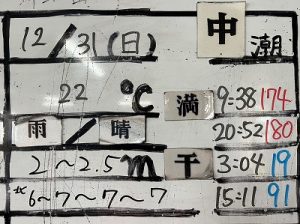 12/31(日) 中潮
22℃ 満 9:38 174
雨/晴 20:52 180
2~2.5m 干 3:04 19
北6~7~7~7 15:11 91